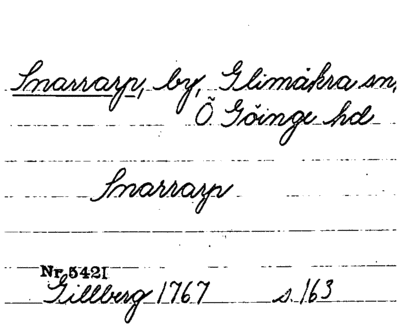 Snarrarp, by, Glimåkra sn,
Ö Göinge hd
Snarrarp
Nr. 5421
Gillberg 1767 s. 163